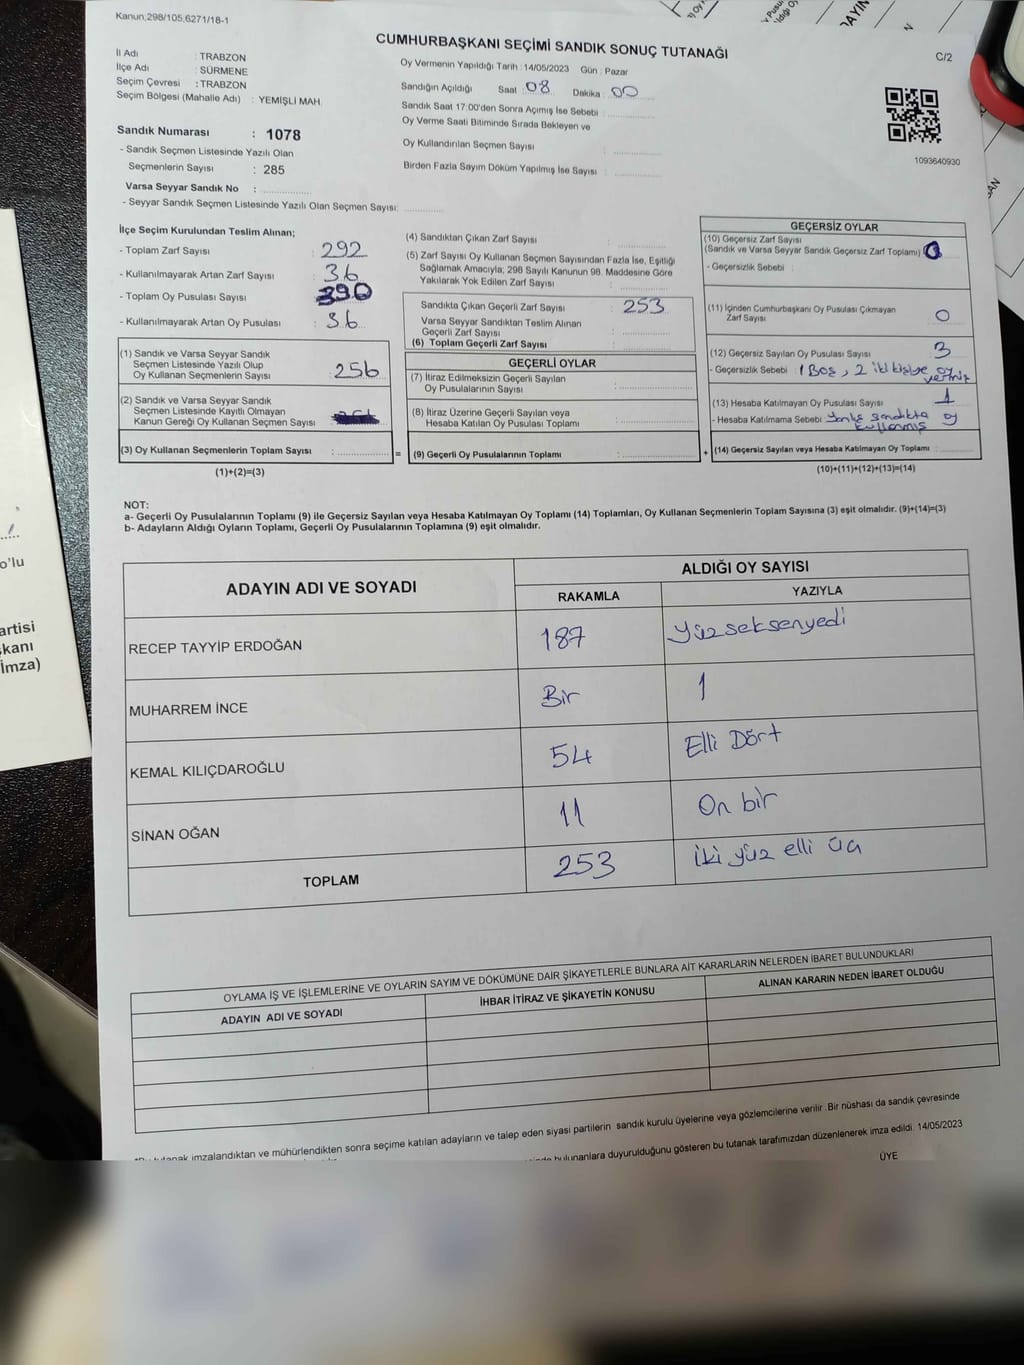 Kanun,298/105,6271/18-1
CUMHURBAŞKANI SEÇİMİ SANDIK SONUÇ TUTANAĞI
C/2
İl Adı : TRABZON
İlçe Adı : SÜRMENE
Seçim Çevresi : TRABZON
Seçim Bölgesi (Mahalle Adı) : YEMİŞLİ MAH.
Oy Vermenin Yapıldığı Tarih : 14/05/2023 Gün : Pazar
Sandığın Açıldığı Saat : 08 Dakika : 00
Sandık Saat 17:00'den Sonra Açımış İse Sebebi :
Oy Verme Saati Bitiminde Sırada Bekleyen ve
Oy Kullandırılan Seçmen Sayısı :
Birden Fazla Sayım Döküm Yapılmış İse Sayısı :
1093640930
Sandık Numarası : 1078
- Sandık Seçmen Listesinde Yazılı Olan
Seçmenlerin Sayısı : 285
Varsa Seyyar Sandık No :
- Seyyar Sandık Seçmen Listesinde Yazılı Olan Seçmen Sayısı:
İlçe Seçim Kurulundan Teslim Alınan;
- Toplam Zarf Sayısı : 292
- Kullanılmayarak Artan Zarf Sayısı : 36
- Toplam Oy Pusulası Sayısı : 390
- Kullanılmayarak Artan Oy Pusulası : 36
(1) Sandık ve Varsa Seyyar Sandık
Seçmen Listesinde Yazılı Olup
Oy Kullanan Seçmenlerin Sayısı : 256
(2) Sandık ve Varsa Seyyar Sandık
Seçmen Listesinde Kayıtlı Olmayan
Kanun Gereği Oy Kullanan Seçmen Sayısı :
(3) Oy Kullanan Seçmenlerin Toplam Sayısı :
=
(1)+(2)=(3)
(4) Sandıktan Çıkan Zarf Sayısı :
(5) Zarf Sayısı Oy Kullanan Seçmen Sayısından Fazla İse, Eşitliği
Sağlamak Amacıyla; 298 Sayılı Kanunun 98. Maddesine Göre
Yakılarak Yok Edilen Zarf Sayısı :
Sandıkta Çıkan Geçerli Zarf Sayısı : 253
Varsa Seyyar Sandıktan Teslim Alınan
Geçerli Zarf Sayısı :
(6) Toplam Geçerli Zarf Sayısı :
GEÇERLİ OYLAR
(7) İtiraz Edilmeksizin Geçerli Sayılan
Oy Pusulalarının Sayısı :
(8) İtiraz Üzerine Geçerli Sayılan veya
Hesaba Katılan Oy Pusulaları Toplamı :
(9) Geçerli Oy Pusulalarının Toplamı :
+
GEÇERSİZ OYLAR
(10) Geçersiz Zarf Sayısı
(Sandık ve Varsa Seyyar Sandık Geçersiz Zarf Toplamı) :
- Geçersizlik Sebebi :
(11) İçinden Cumhurbaşkanı Oy Pusulası Çıkmayan
Zarf Sayısı : 0
(12) Geçersiz Sayılan Oy Pusulası Sayısı : 3
- Geçersizlik Sebebi : 1 Boş, 2 iki kişiye oy
vermiş
(13) Hesaba Katılmayan Oy Pusulası Sayısı : 1
- Hesaba Katılmama Sebebi : Yanlış sandıkta oy
kullanmış
(14) Geçersiz Sayılan veya Hesaba Katılmayan Oy Toplamı :
(10)+(11)+(12)+(13)=(14)
NOT:
a- Geçerli Oy Pusulalarının Toplamı (9) ile Geçersiz Sayılan veya Hesaba Katılmayan Oy Toplamı (14) Toplamları, Oy Kullanan Seçmenlerin Toplam Sayısına (3) eşit olmalıdır. (9)+(14)=(3)
b- Adayların Aldığı Oyların Toplamı, Geçerli Oy Pusulalarının Toplamına (9) eşit olmalıdır.
ADAYIN ADI VE SOYADI
ALDIĞI OY SAYISI
RAKAMLA YAZIYLA
RECEP TAYYİP ERDOĞAN 187 Yüzseksenyedi
MUHARREM İNCE Bir 1
KEMAL KILIÇDAROĞLU 54 Elli Dört
SİNAN OĞAN 11 On bir
TOPLAM 253 İki yüz elli üç
OYLAMA İŞ VE İŞLEMLERİNE VE OYLARIN SAYIM VE DÖKÜMÜNE DAİR ŞİKAYETLERLE BUNLARA AİT KARARLARIN NELERDEN İBARET BULUNDUKLARI
ADAYIN ADI VE SOYADI İHBAR İTİRAZ VE ŞİKAYETİN KONUSU ALINAN KARARIN NEDEN İBARET OLDUĞU
tutanak imzalandıktan ve mühürlendikten sonra seçime katılan adayların ve talep eden siyasi partilerin sandık kurulu üyelerine veya gözlemcilerine verilir. Bir nüshası da sandık çevresinde
bulunanlara duyurulduğunu gösteren bu tutanak tarafımızdan düzenlenerek imza edildi. 14/05/2023
ÜYE
o'lu
artisi
şkanı
İmza)